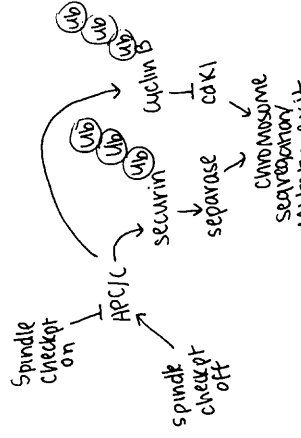 Spindle
checkpt
on
APC/C
spindle
checkpt
off
Ub
Ub
Ub
securin
separase
Ub
Ub
Ub
cyclin B
cdk1
chromosome
segregation/